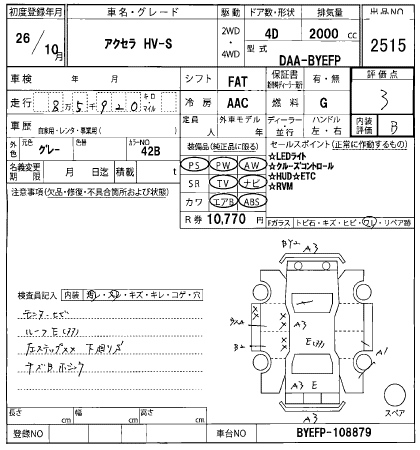 初度登録年月 車名・グレード 駆動 ドア数・形状 排気量 出品NO
26年 10月 アクセラ HV-S 2WD・4WD 4D 2000cc 2515
型式 DAA-BYEFP
車検 年 月 シフト FAT 保証書 有・無 評価点
走行 85920 キロ・マイル 冷房 AAC 燃料 G 3
車歴 自家用・レンタ・事業用( ) 定員 人 外車モデル 年 ディーラー・並行 ハンドル 左・右 内装評価 B
外色 元色 グレー 色替 カラーNO 42B 装備品(純正品に限る) セールスポイント(正常に作動するもの)
名義変更期限 月 日迄 積載 t PS PW AW ☆LEDライト
☆クルーズコントロール
注意事項(欠品・修復・不具合箇所および状態) SR TV ナビ ☆HUD☆ETC
カワ エアB ABS ☆RVM
R券 10,770円 Fガラス トビ石・キズ・ヒビ・ワレ・リペア跡
BY2 A3
検査員記入 内装 キズ・キレ・コゲ・穴
A3
ルーフE
E
B2 A1
A3 E
A3
スペア
長さ cm 幅 cm 高さ cm
登録NO 車台NO BYEFP-108879